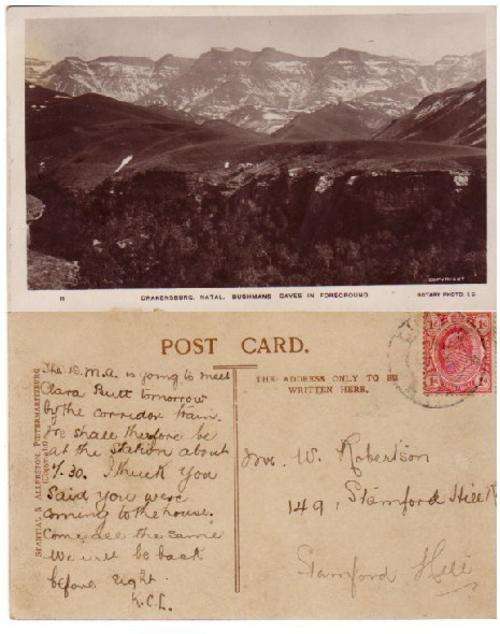 11
DRAKENSBURG, NATAL. BUSHMANS CAVES IN FOREGROUND.
COPYRIGHT
ROTARY PHOTO. I.S
POST CARD.
THE ADDRESS ONLY TO BE
WRITTEN HERE.
SHANTIAL & ALLERSTON, PIETERMARITZBURG
The D.M.A. is going to meet
Clara Butt tomorrow
by the corridor train.
We shall therefore be
at the Station about
7.30. I think you
said you were
coming to the house.
Come all the same
We will be back
before eight.
K.C.L.
Mrs. W. Robertson
149, Stamford Hill R
Stamford Hill